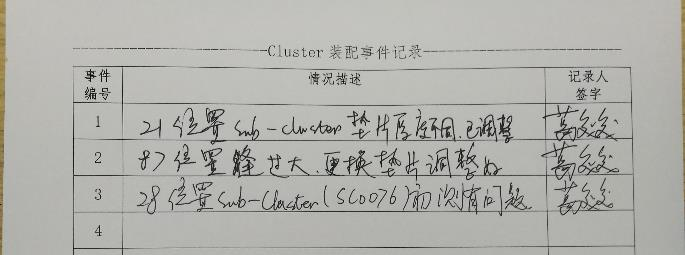 Cluster 装配事件记录
事件编号 情况描述 记录人签字
1 21位置sub-cluster垫片厚度不同,已调整
2 87位置缝过大,更换垫片调整好
3 28位置sub-cluster(SC0076) 有问题
4